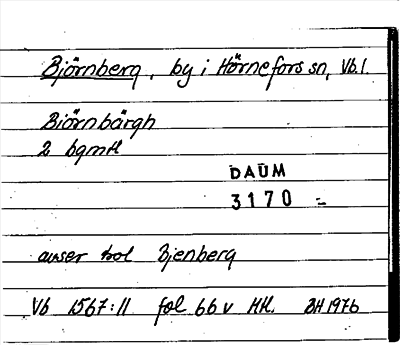 Björnberg, by i Hörnefors sn, Vb.l.
Biörnbärgh
2 bqmtl
DAUM
3170
anser bol Bjenberg
Vb 1567:11 fol 66 v HH. BH 1976